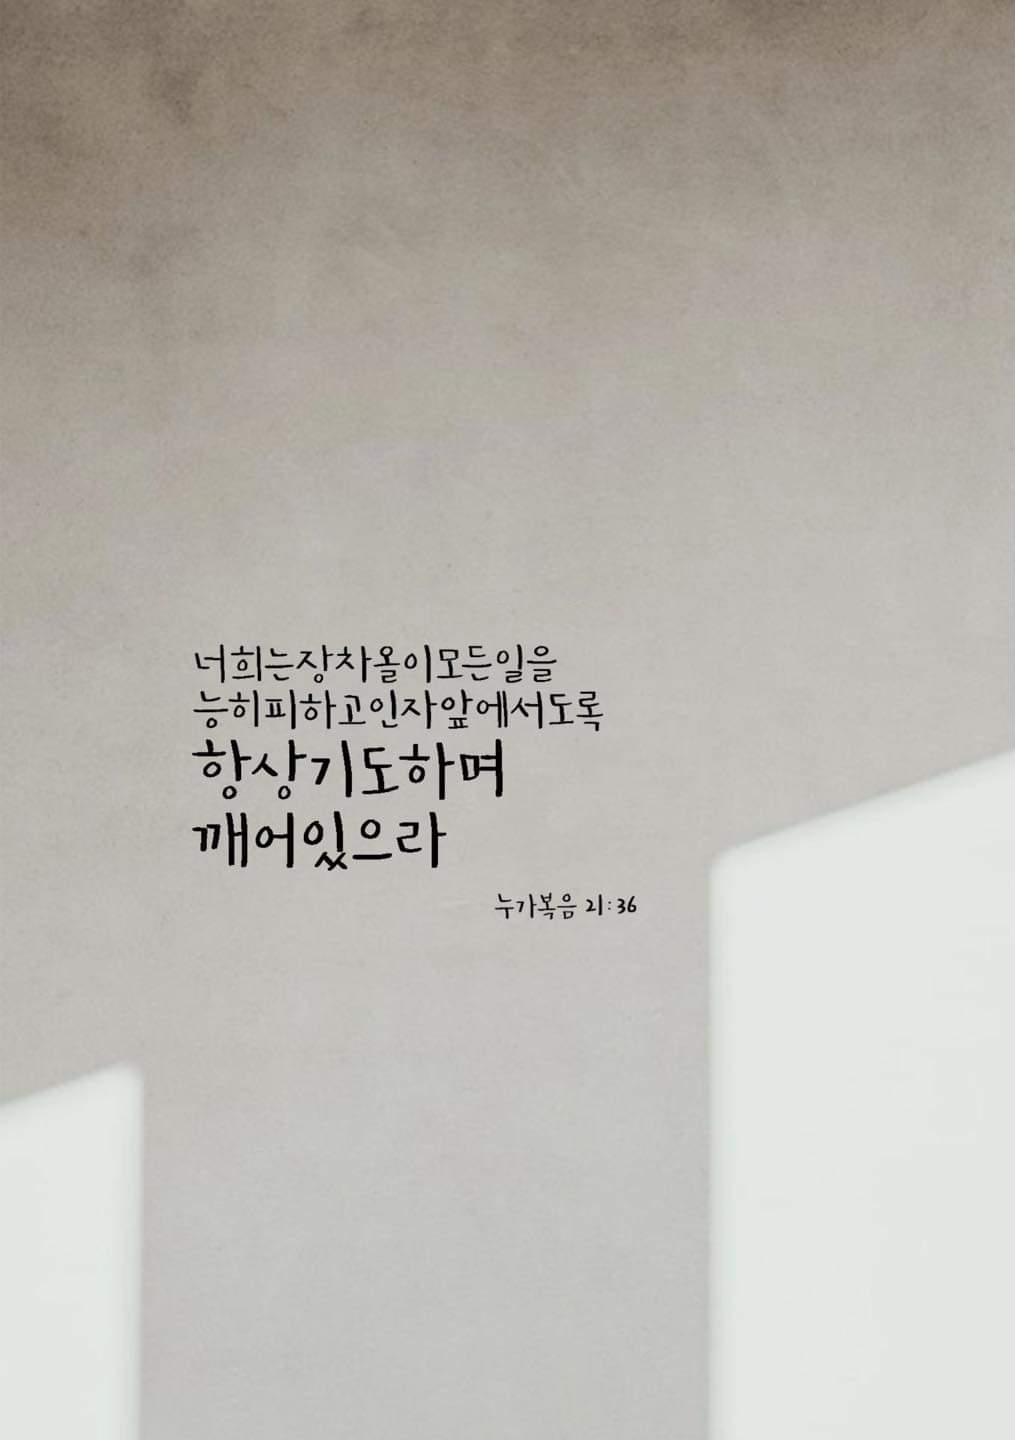 너희는장차올이모든일을
능히피하고인자앞에서도록
항상기도하며
깨어있으라
누가복음 21:36